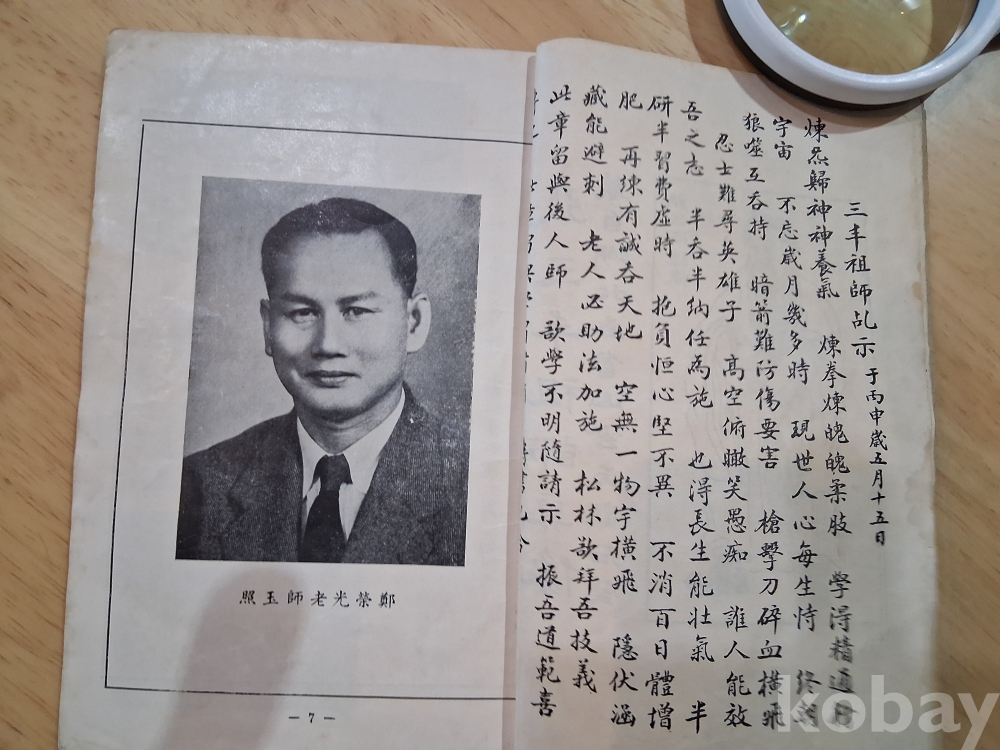 三丰祖師乩示 于丙申歲五月十五日
煉炁歸神神養氣 煉拳煉魄魄柔肢 學淂精通
宇宙 不忘歲月幾多時 現世人心每生恃 終朝
狼噬互吞持 暗箭難防傷要害 槍擊刀碎血橫飛
忍士難尋英雄子 高空俯瞰笑愚痴 誰人能效
吾之志 半吞半納任為施 也淂長生能壯氣 半
研半習費虛時 抱負恒心堅不異 不消百日體增
肥 再練有誠吞天地 空無一物宇橫飛 隱伏涵
藏能避刺 老人必助法加施 松林欲拜吾技義
此章留與後人師 欲學不明隨請示 振吾道範喜
鄭榮光老師玉照
— 7 —
kobay